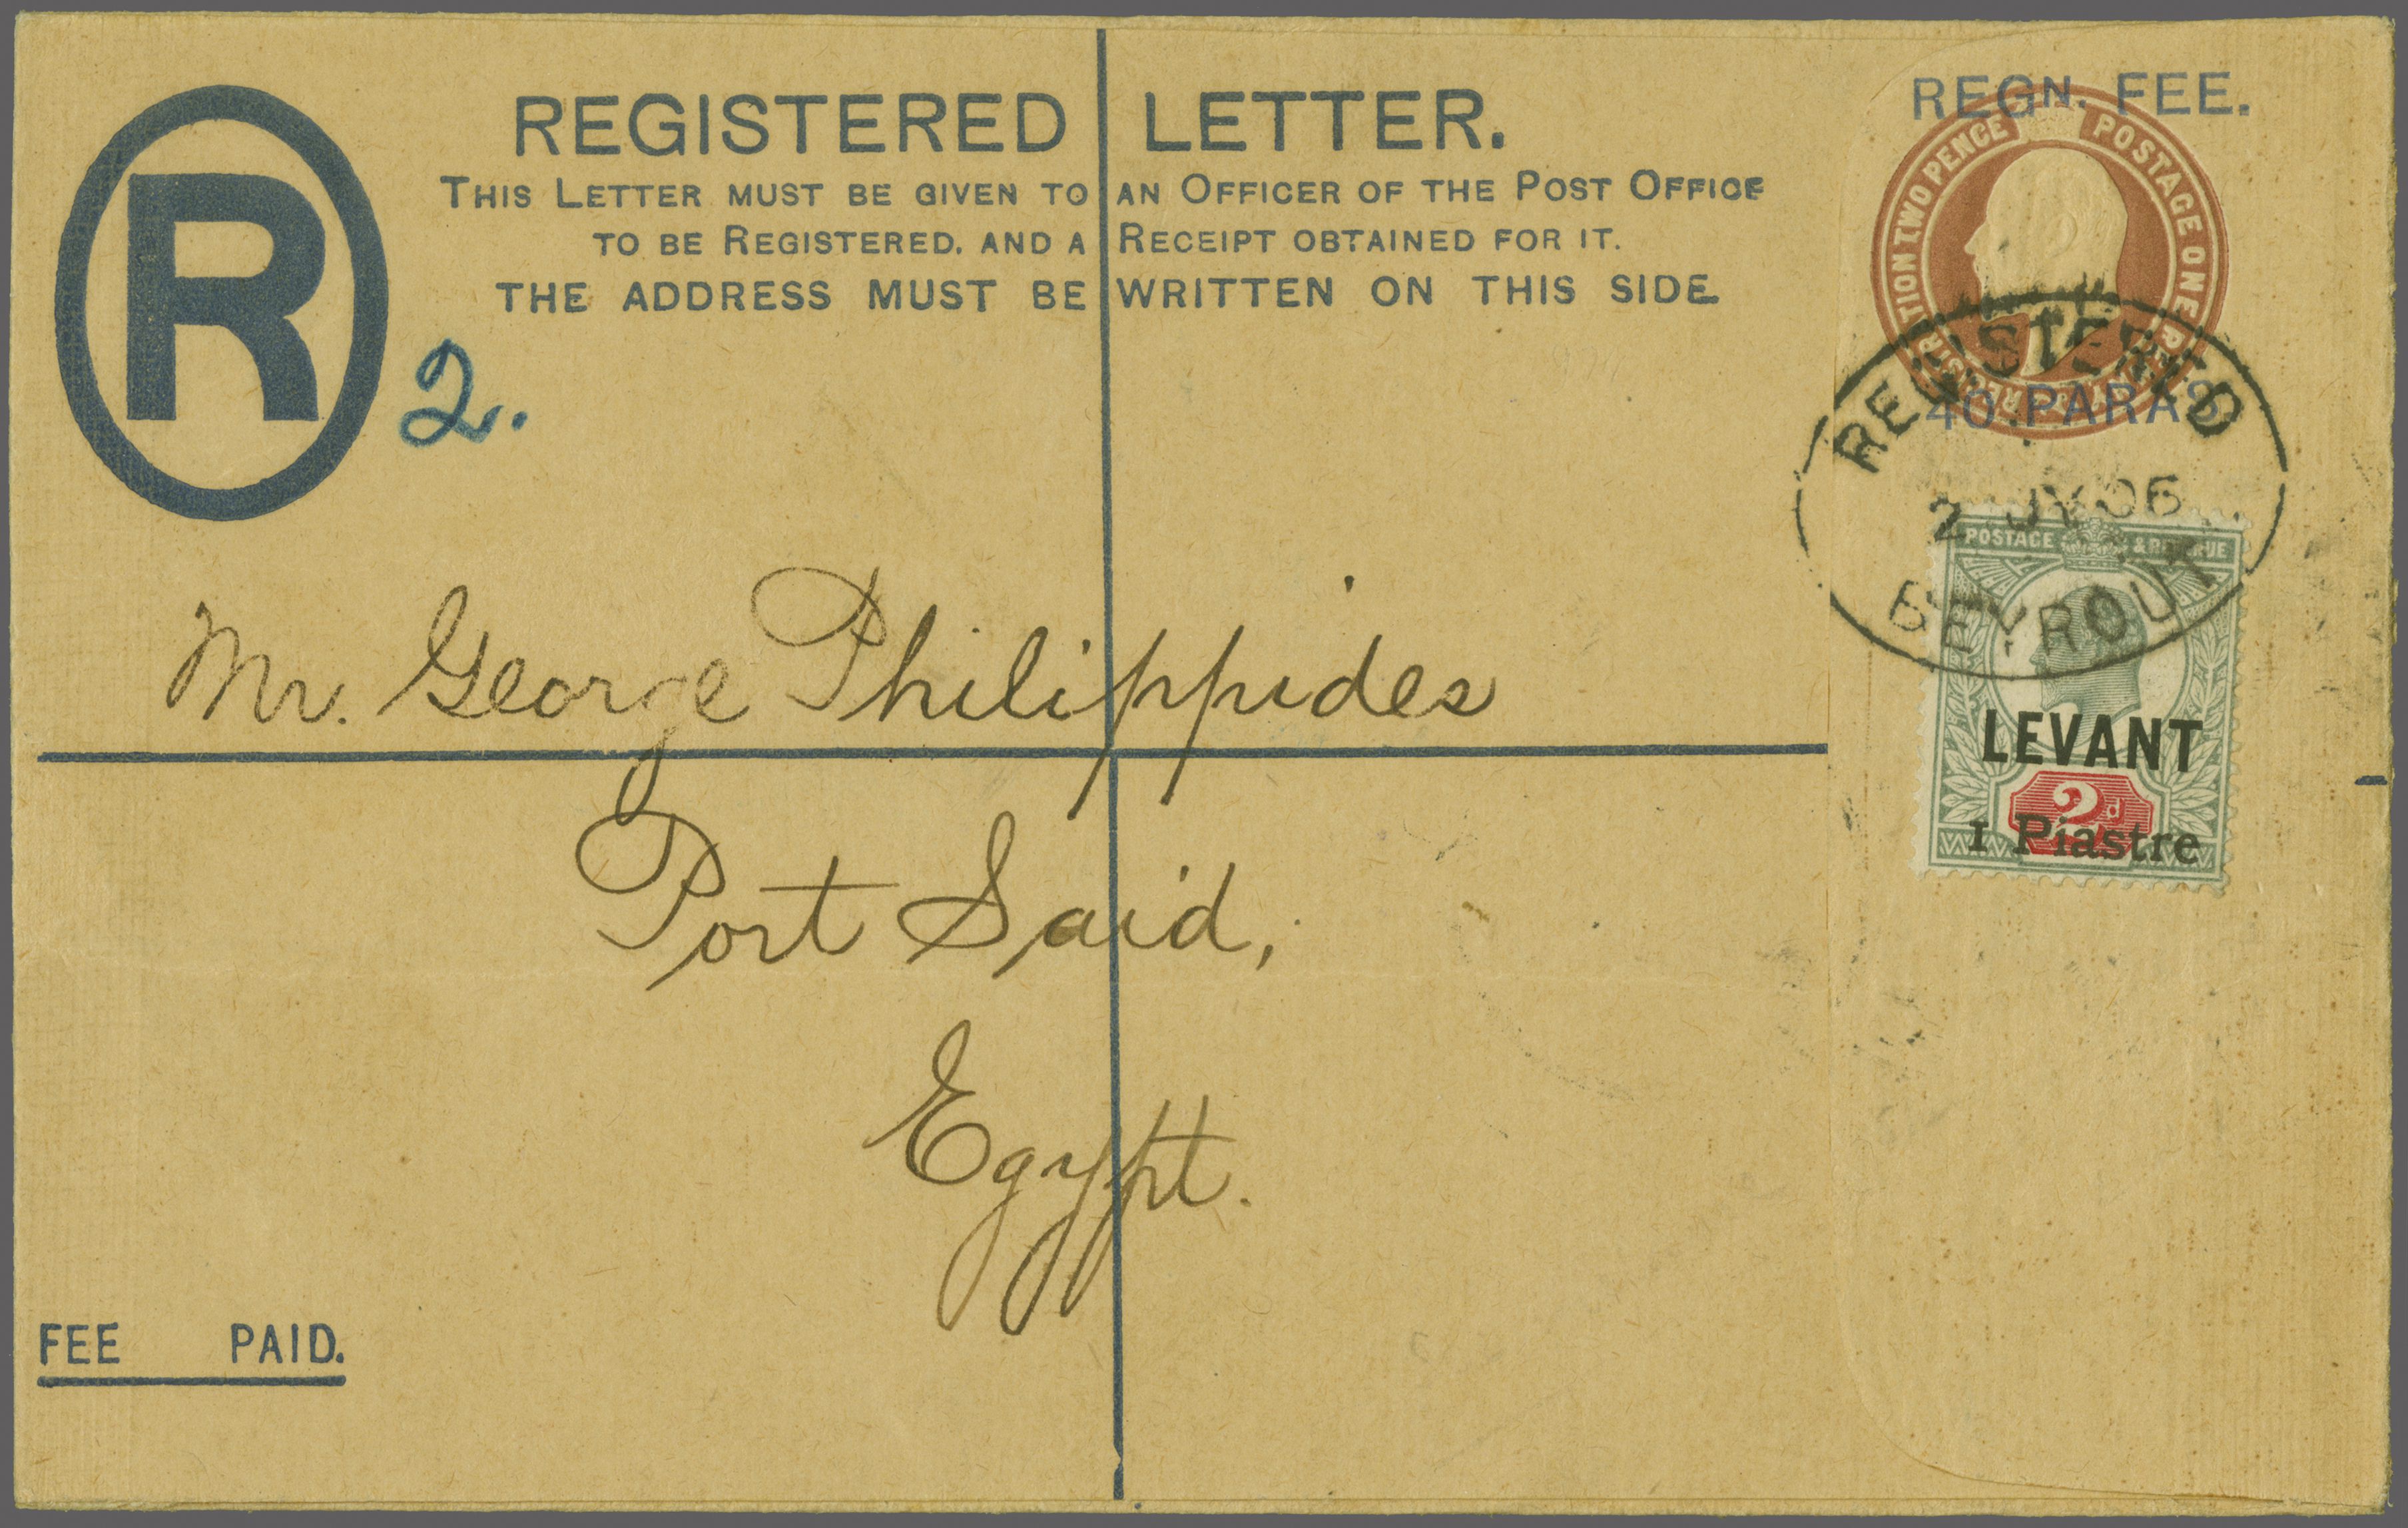 REGISTERED LETTER.
THIS LETTER MUST BE GIVEN TO AN OFFICER OF THE POST OFFICE
TO BE REGISTERED, AND A RECEIPT OBTAINED FOR IT.
THE ADDRESS MUST BE WRITTEN ON THIS SIDE
R
2.
REGN. FEE.
POSTAGE ONE
TWO PENCE
40 PARAS
REGISTERED
2 JY 06
BEYROUT
POSTAGE & REVENUE
LEVANT
2d
1 Piastre
Mr. George Philippides
Port Said,
Egypt.
FEE PAID.